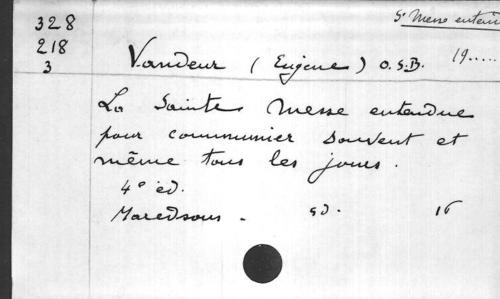 Sᵉ Messe entend
328
218
3
Vandeur (Eugène) O.S.B.
19.....
La Sainte Messe entendue
pour communier souvent et
même tous les jours.
4º éd.
Maredsous. sd. 16